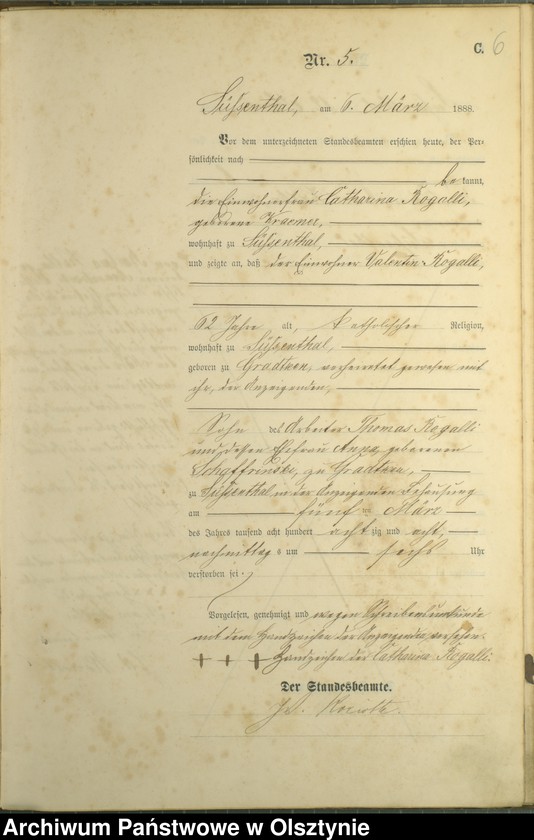 C. 6
Nr. 5.
Süssenthal, am 6. März 1888.
Vor dem unterzeichneten Standesbeamten erschien heute, der Per-
sönlichkeit nach
be kannt,
die Einwohnerfrau Catharina Rogalli,
geborene Kraemer,
wohnhaft zu Süssenthal,
und zeigte an, daß der Einwohner Valentin Rogalli,
62 Jahre alt, katholischer Religion,
wohnhaft zu Süssenthal,
geboren zu Gradtken, verheiratet gewesen mit
ihr, der Anzeigenden,
Sohn des Arbeiter Thomas Rogalli
und dessen Ehefrau Anna, geborenen
zu Gradtken,
zu Süssenthal in der Anzeigenden Behausung
am fünf ten März
des Jahres tausend acht hundert acht zig und acht,
nachmittag s um sechs Uhr
verstorben sei.
Vorgelesen, genehmigt und wegen Schreibensunkunde
mit dem Handzeichen der Anzeigenden versehen.
+ + + Handzeichen der Catharina Rogalli.
Der Standesbeamte.
Archiwum Państwowe w Olsztynie